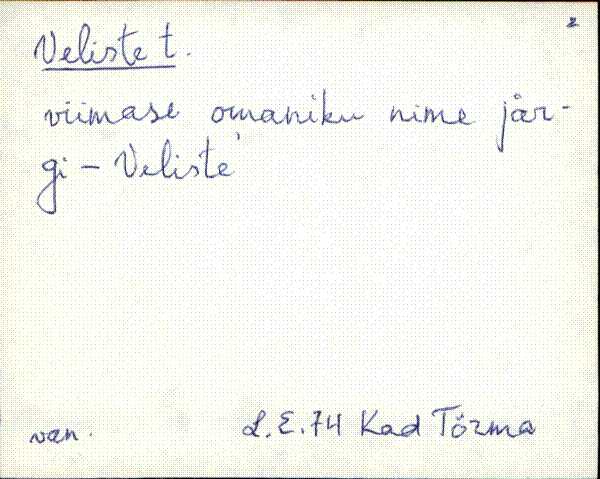 2
Veliste t.
viimase omaniku nime jär-
gi – Veliste'
van.
L.E.74 Kad Tõrma